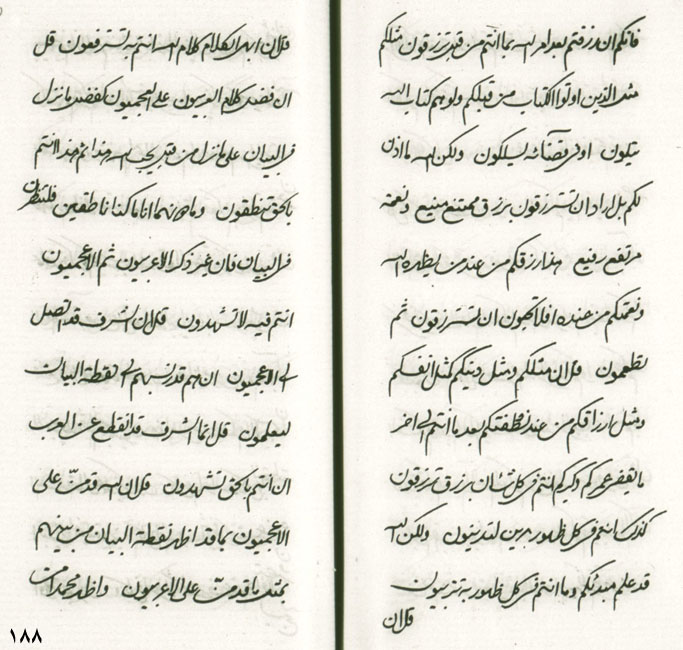 فانكم ان رزقتم بعد امر الله بما انتم من قبل ترزقون مثلكم
مثل الذين اوتوا الكتاب من قبلكم ولو هم كتاب الله
يتلون او فى رضائه ليسلكون ولكن الله ما اذن
لكم بل اراد ان تسترزقون برزق ممتنع منيع ونعمة
مرتفع رفيع هذا رزقكم من عند من يظهره الله
ونعمتكم من عنده افلا تحبون ان تسترزقون ثم
تطعمون قل ان مثلكم ومثل دينكم كمثل انفسكم
ومثل ارزاقكم من عند نطفتكم بعد ما انتم الى اخر
ما يقضى عمركم ذكركم انتم فى كل شأن برزق ترزقون
كذلك انتم فى كل ظهور بدين لتدينون ولكن الله
قد علم مبدئكم وما انتم فى كل ظهور به تربيون
قل ان
قل ان ابدا الكلام كلام الله انتم به تسترفعون قل
ان فضل كلام العربيون على العجميون كفضل ما نزل
فى البيان على ما نزل من قبل
بالحق تنطقون وما دونهما انا ما كنا ناطقين فلتنظرن
فى البيان فان غير ذكر الاعربيون ثم الاعجميون
انتم فيه لا تشهدون قل ان الشرف قد اتصل
الى الاعجميون ان هم قدر نسبهم الى نقطة البيان
ليعلمون قل انما الشرف قد انقطع عن العرب
ان انتم بالحق تشهدون قل ان الله قد منّ على
الاعجميون بما قد اظهر نقطة البيان من بينهم
بمثل ما قد منّ على الاعربيون واظهر محمدا من
١٨٨